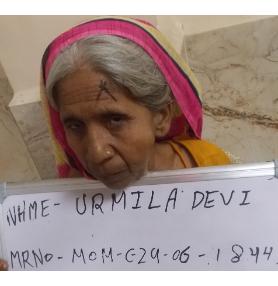 NAME- URMILA DEVI
MRNO- MOM-G29-06-1844